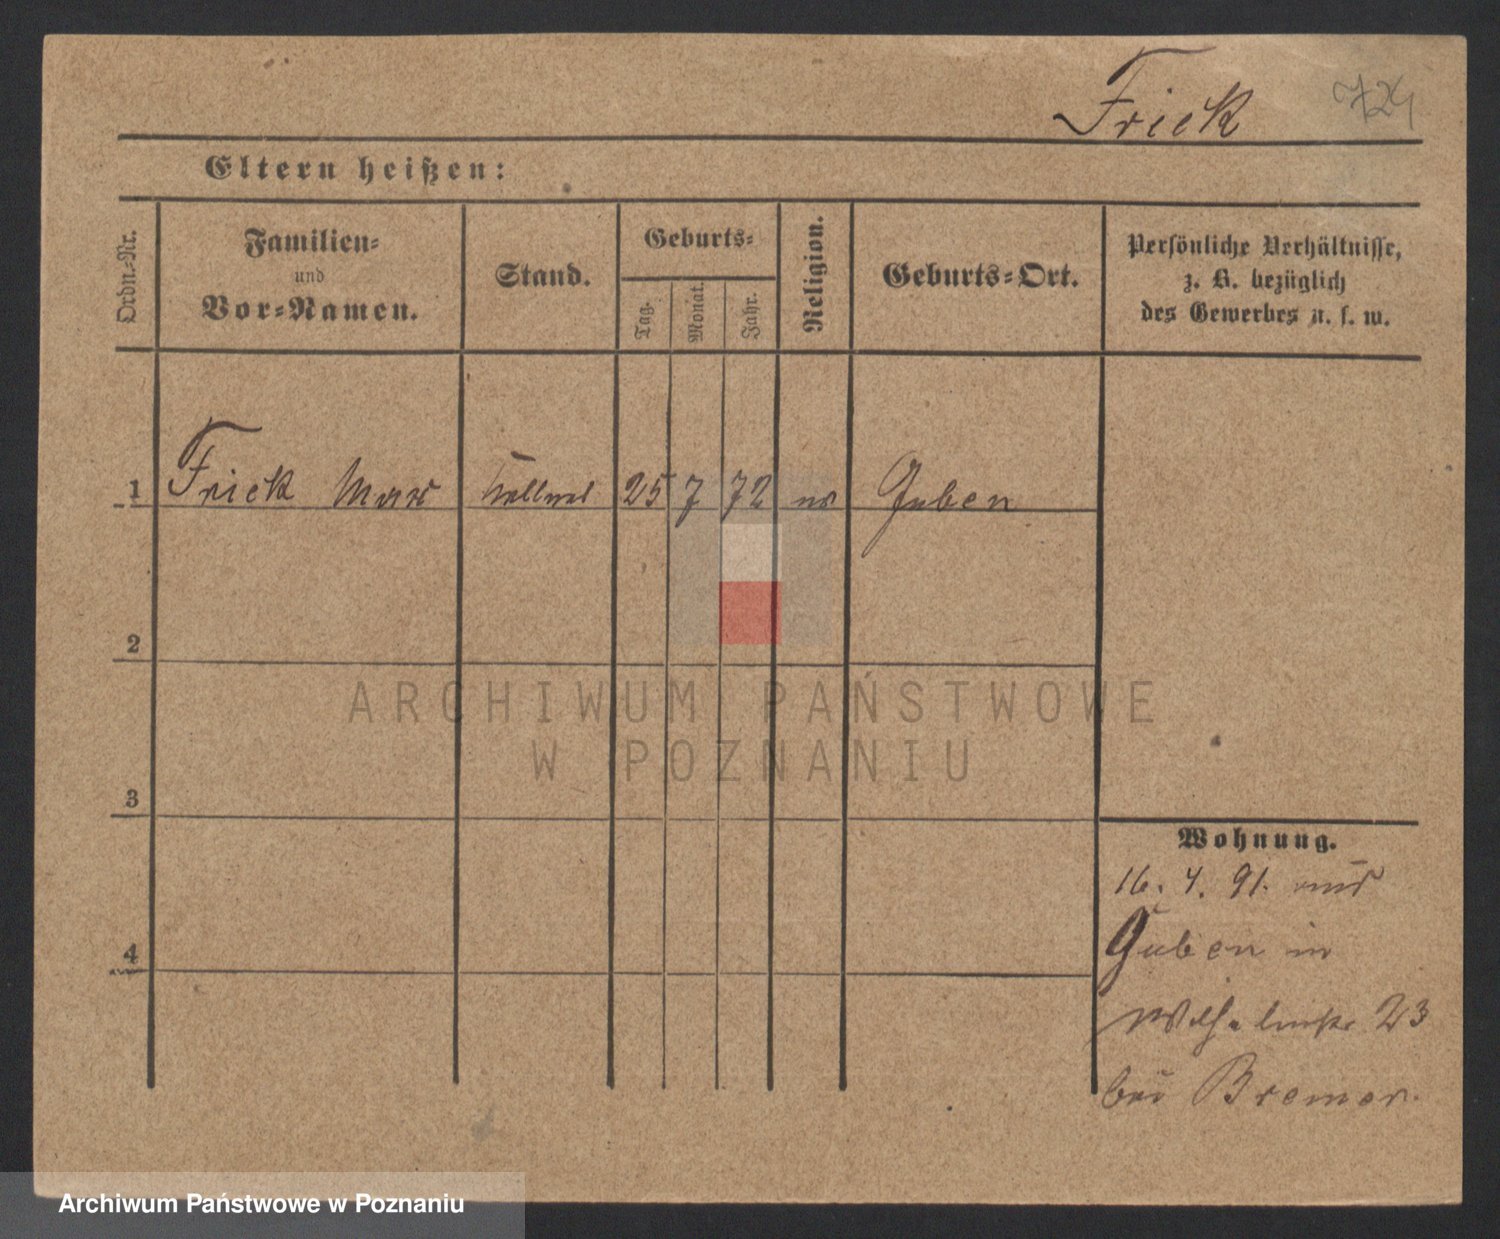 Frick 724
Eltern heißen:
Ordn.-Nr.
Familien-
und
Vor-Namen.
Stand.
Geburts-
Tag.
Monat.
Jahr.
Religion.
Geburts-Ort.
Persönliche Verhältnisse,
z. B. bezüglich
des Gewerbes u. s. w.
1 Frick Max Kellner 25 7 72 ev Guben
2
3
4
ARCHIWUM PAŃSTWOWE
W POZNANIU
Wohnung.
16. 4. 91. aus
Guben in
23
bei Bremer.
Archiwum Państwowe w Poznaniu